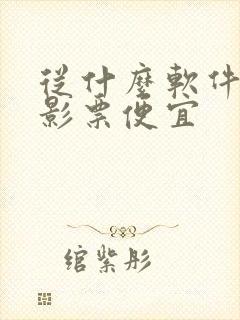 從什麼軟件
影票便宜
綰紫彤